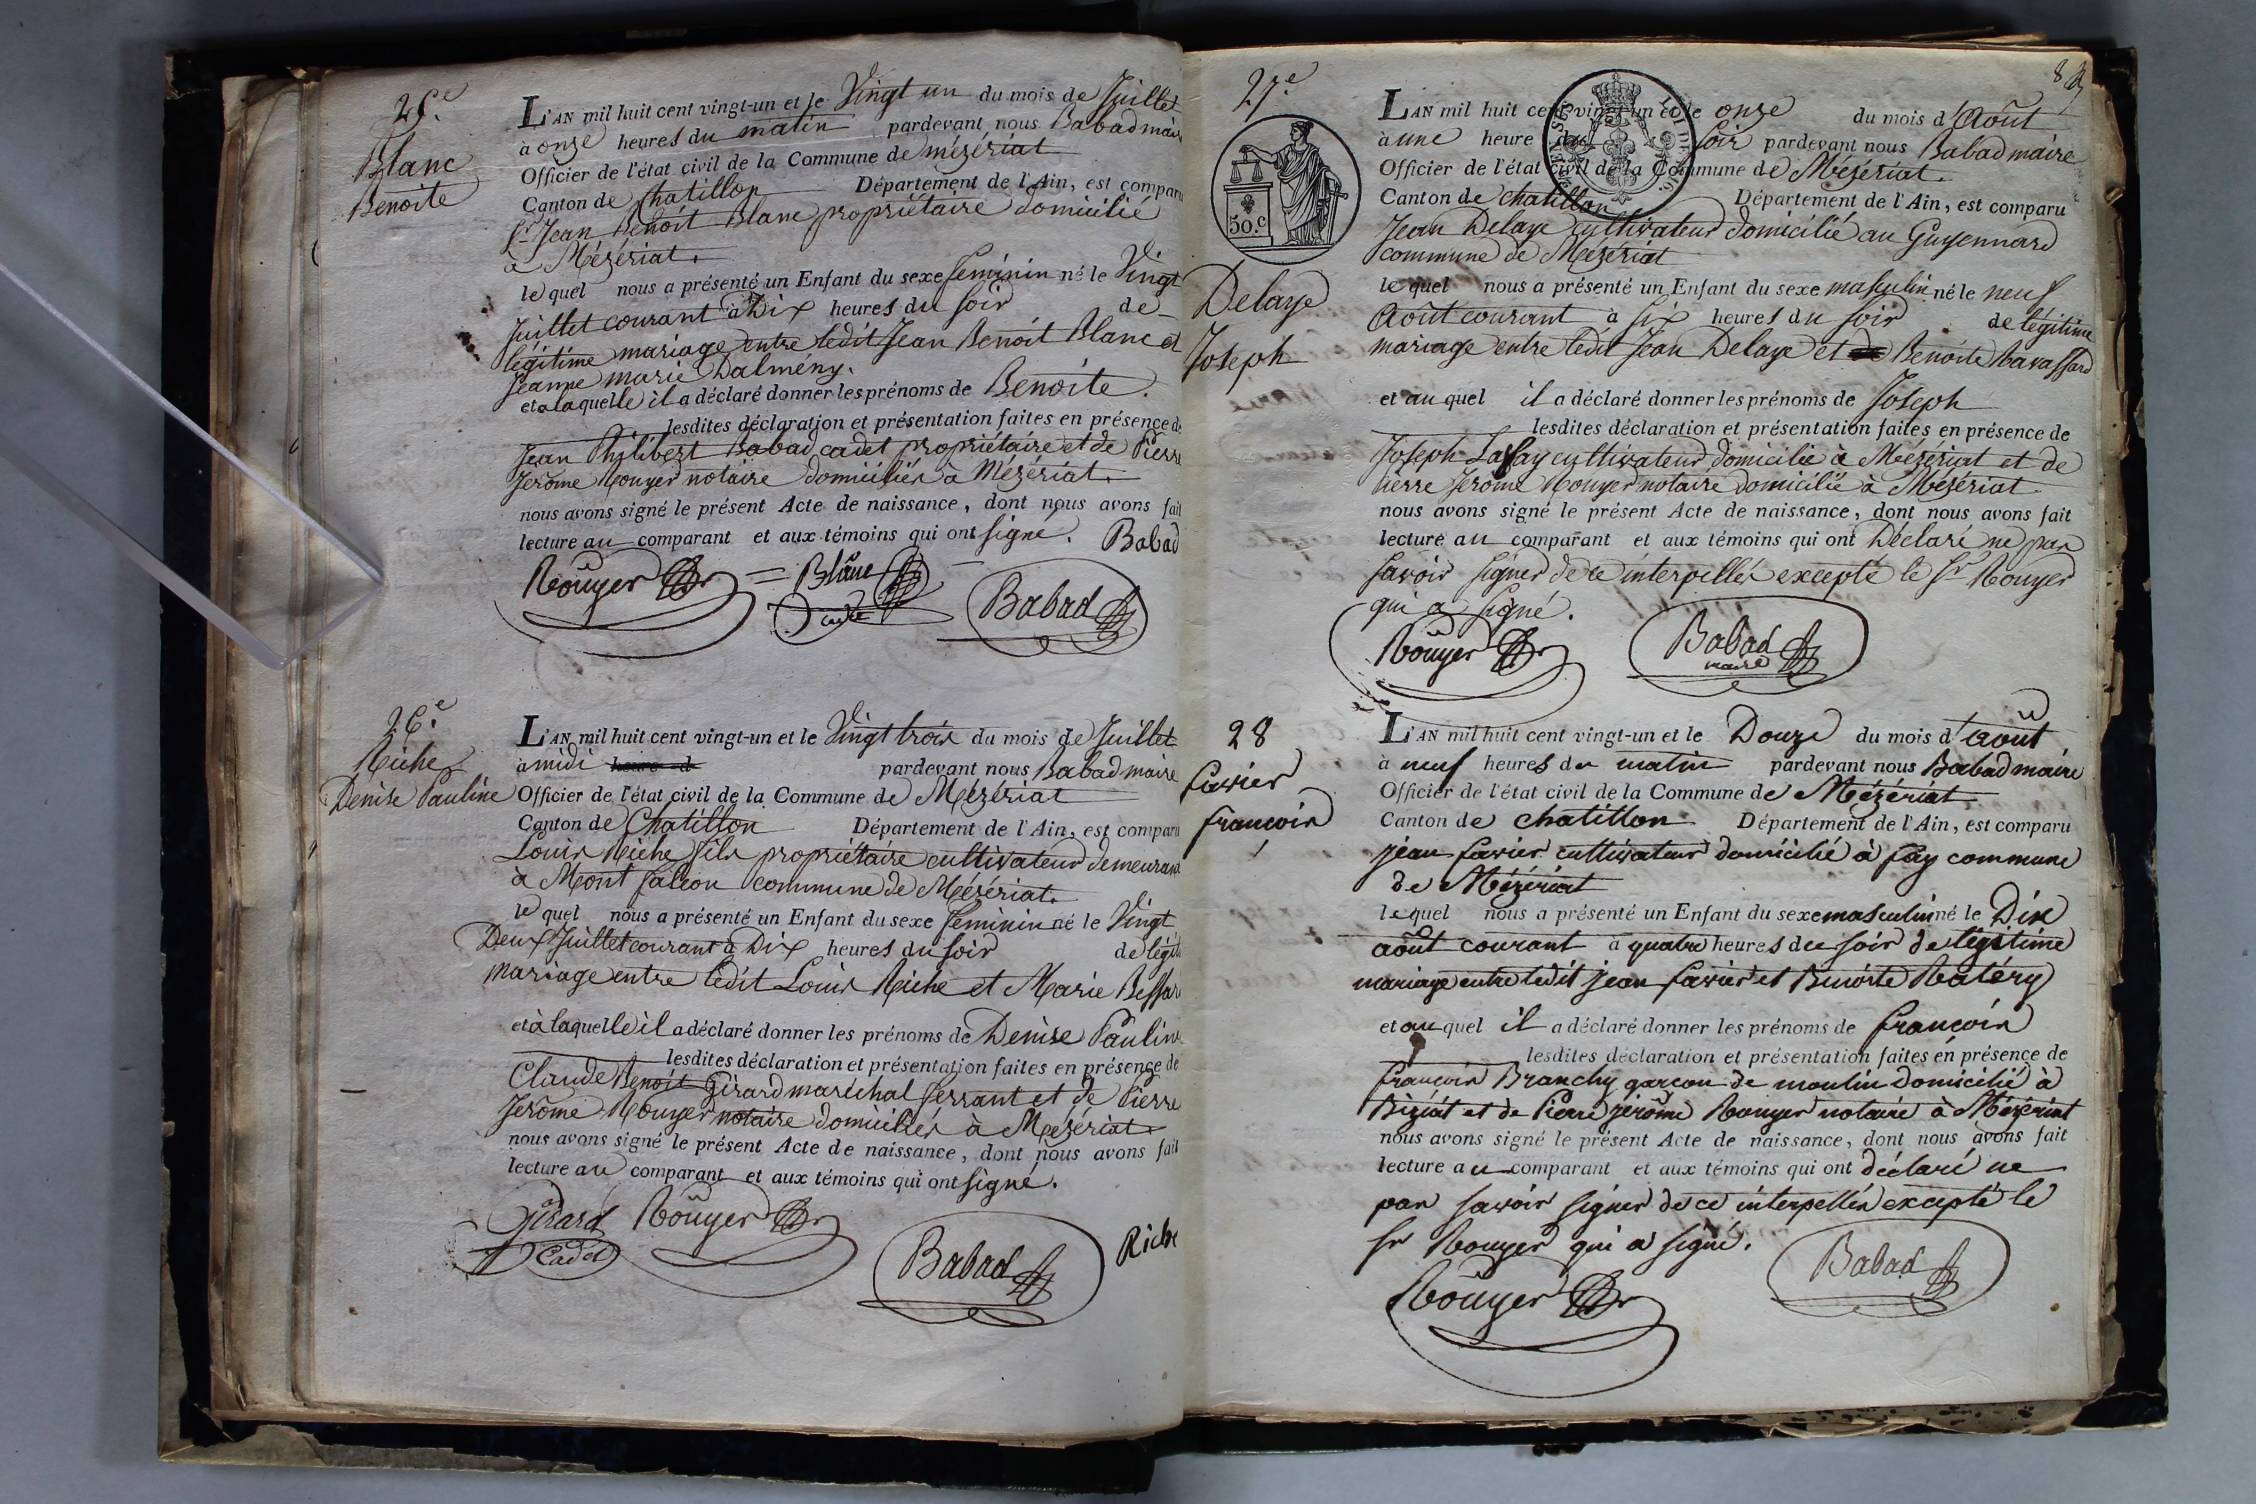 25.e
Blanc
Benoite
L'AN mil huit cent vingt-un et le Vingt un du mois de Juillet
à onze heures du matin pardevant nous Babad maire
Officier de l'état civil de la Commune de mézériat
Canton de Chatillon Département de l'Ain, est comparu
Sr. Jean Benoit Blanc propriétaire domicilié
à Mézériat.
le quel nous a présenté un Enfant du sexe feminin né le Vingt
Juillet courant à Dix heures du soir de
légitime mariage entre ledit Jean Benoit Blanc et
Jeanne marie Dalmény.
et a laquelle il a déclaré donner les prénoms de Benoite.
lesdites déclaration et présentation faites en présence de
Jean Philibert Babad cadet propriétaire et de Pierre
Jerôme Rouyer notaire domiciliés à Mézériat.
nous avons signé le présent Acte de naissance, dont nous avons fait
lecture au comparant et aux témoins qui ont signé. Babad
Roüyer Blanc Babad
cadet
26.e
Riche
Denise Pauline
L'AN mil huit cent vingt-un et le Vingt trois du mois de Juillet
à midi pardevant nous Babad maire
Officier de l'état civil de la Commune de Mézériat
Canton de Chatillon Département de l'Ain, est comparu
Louis Riche fils propriétaire cultivateur demeurant
à Mont falcon commune de Mézériat.
le quel nous a présenté un Enfant du sexe feminin né le Vingt
Deux Juillet courant à Dix heures du soir de légit
mariage entre ledit Louis Riche et Marie Bessar
et à laquelle il a déclaré donner les prénoms de Denise Pauline
lesdites déclaration et présentation faites en présence de
Claude Benoit Girard maréchal ferrant et de Pierre
Jerôme Rouyer notaire domiciliés à Mézériat.
nous avons signé le présent Acte de naissance, dont nous avons fait
lecture au comparant et aux témoins qui ont signé.
Girard Roüyer Babad Riche
Cadet
27.e
50.C
Delaye
Joseph
L'AN mil huit cent vingt-un et le onze du mois d'Août
à une heure du soir pardevant nous Babad maire
Officier de l'état civil de la Commune de Mézériat.
Canton de chatillon Département de l'Ain, est comparu
Jean Delaye cultivateur domicilié au Guyennard
commune de Mézériat
le quel nous a présenté un Enfant du sexe masculin né le neuf
Août courant à six heures du soir de légitime
mariage entre ledit Jean Delaye et Benoite Ravassard
et au quel il a déclaré donner les prénoms de Joseph
lesdites déclaration et présentation faites en présence de
Joseph Lafay cultivateur domicilié à Mézériat et de
Pierre Jerôme Rouyer notaire domicilié à Mézériat
nous avons signé le présent Acte de naissance, dont nous avons fait
lecture au comparant et aux témoins qui ont Déclaré ne pas
savoir signer de ce interpellés excepté le Sr Rouyer
qui a signé.
Roüyer Babad
maire
28
favier
francois
L'AN mil huit cent vingt-un et le Douze du mois d'août
à neuf heures du matin pardevant nous Babad maire
Officier de l'état civil de la Commune de Mézériat
Canton de chatillon Département de l'Ain, est comparu
jean favier cultivateur domicilié à fay commune
de Mézériat
le quel nous a présenté un Enfant du sexe masculin né le Dix
août courant à quatre heures du soir de légitime
mariage entre ledit jean favier et Benoite Ratéry
et au quel il a déclaré donner les prénoms de francois
lesdites déclaration et présentation faites en présence de
francois Branchy garcon de moulin domicilié à
Biziat et de Pierre jérôme Rouyer notaire à Mézériat
nous avons signé le présent Acte de naissance, dont nous avons fait
lecture au comparant et aux témoins qui ont déclaré ne
pas savoir signer de ce interpellés excepté le
Sr Rouyer qui a signé.
Roüyer Babad